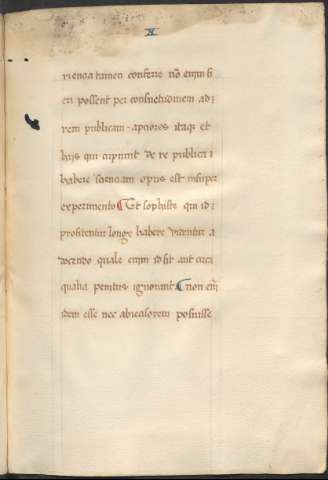 XI
rienca tamen conferre nō enim fi
eri possent per consuetudinem ad
rem publicam · apciores itaqꝫ et
hijs qui cupiunt de re publica
habere scienciam opus est insuper
experimento ¶ Et sophiste qui id
profitentur longe habere videntur a
docendo quale enim id sit aut circa
qualia penitus ignorant ¶ non eni͞
idem esse nec abieccíorem posuisse